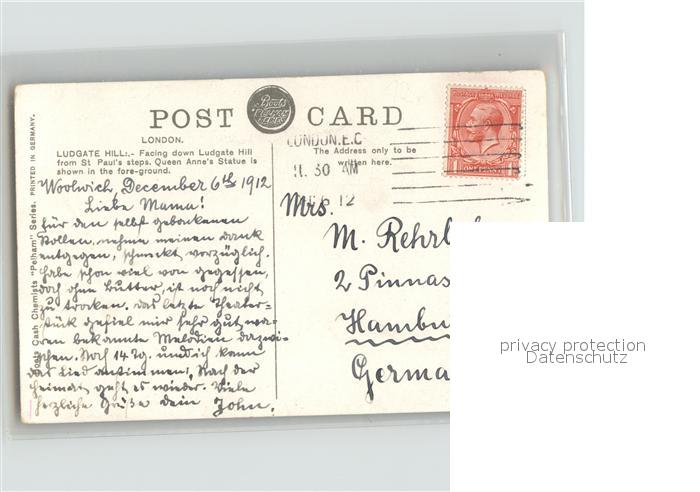 POST CARD
Boots
LONDON.
LUDGATE HILL:.- Facing down Ludgate Hill
from St Paul's steps. Queen Anne's Statue is
shown in the fore-ground.
The Address only to be
written here.
LONDON.E.C
11.30 AM
12
ONE PENNY
Boots Cash Chemists "Pelham" Series. PRINTED IN GERMANY.
Woolwich, December 6th 1912
Liebe Mama!
Für den selbst gebackenen
Stollen, nehme meinen Dank
entgegen, schmeckt vorzüglich.
habe schon viel von gegessen,
doch ohne Butter, ist noch nicht
zu trocken. Das letzte Theater-
stück gefiel mir sehr gut, wa-
ren bekannte Melodien dazwi-
schen. Noch 14 Tg. und ich kann
das Lied anstimmen, Nach der
Heimat geht es wieder. Viele
herzliche Grüße dein John.
Mrs.
M. Rehrb
2 Pinnas
Hambu
Germa
privacy protection
Datenschutz